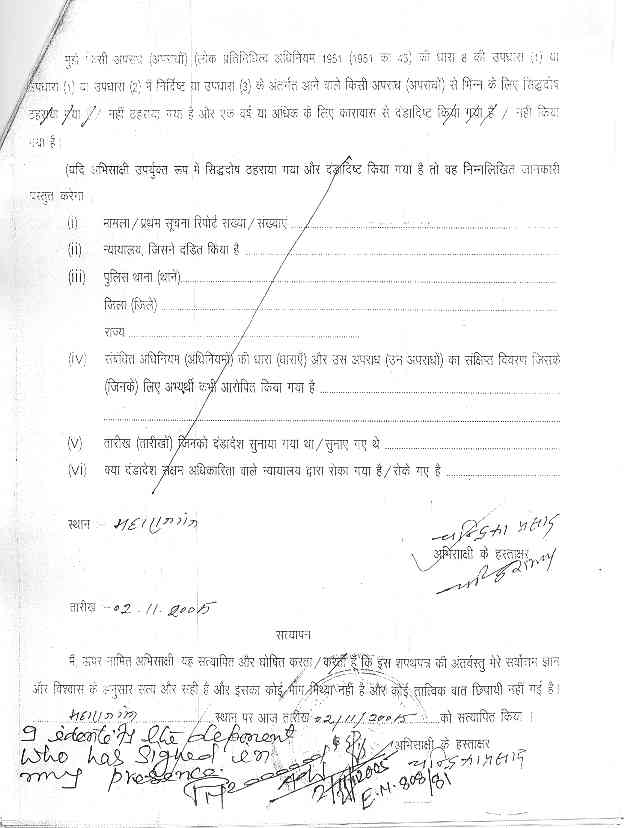 मुझे किसी अपराध (अपराधों) (लोक प्रतिनिधित्व अधिनियम 1951 (1951 का 43) की धारा 8 की उपधारा (1) या
उपधारा (1) या उपधारा (2) में निर्दिष्ट या उपधारा (3) के अंतर्गत आने वाले किसी अपराध (अपराधों) से भिन्न के लिए सिद्धदोष
ठहराया गया / नहीं ठहराया गया है और एक वर्ष या अधिक के लिए कारावास से दंडादिष्ट किया गया है / नहीं किया
गया है।
(यदि अभिसाक्षी उपर्युक्त रूप में सिद्धदोष ठहराया गया और दंडादिष्ट किया गया है तो वह निम्नलिखित जानकारी
प्रस्तुत करेगा
(i) मामला / प्रथम सूचना रिपोर्ट संख्या / संख्याएं
(ii) न्यायालय, जिसने दंडित किया है
(iii) पुलिस थाना (थाने)
जिला (जिले)
राज्य
(iv) संबंधित अधिनियम (अधिनियमों) की धारा (धाराएँ) और उस अपराध (उन अपराधों) का संक्षिप्त विवरण जिसके
(जिनके) लिए अभ्यर्थी कभी आरोपित किया गया है
(v) तारीख (तारीखों) जिनको दंडादेश सुनाया गया था / सुनाए गए थे
(vi) क्या दंडादेश सक्षम अधिकारिता वाले न्यायालय द्वारा रोका गया है / रोके गए है
स्थान :-
अभिसाक्षी के हस्ताक्षर
तारीख -02.11.2005
सत्यापन
मैं, ऊपर नामित अभिसाक्षी यह सत्यापित और घोषित करता / करती हूँ कि इस शपथपत्र की अंतर्वस्तु मेरे सर्वोत्तम ज्ञान
और विश्वास के अनुसार सत्य और सही है और इसका कोई भाग मिथ्या नहीं है और कोई तात्विक बात छिपायी नहीं गई है।
स्थान पर आज तारीख 02/11/2005 को सत्यापित किया ।
I identify the deponent
अभिसाक्षी के हस्ताक्षर
who has signed in
my presence.
2/11/2005
E.N. 808/81